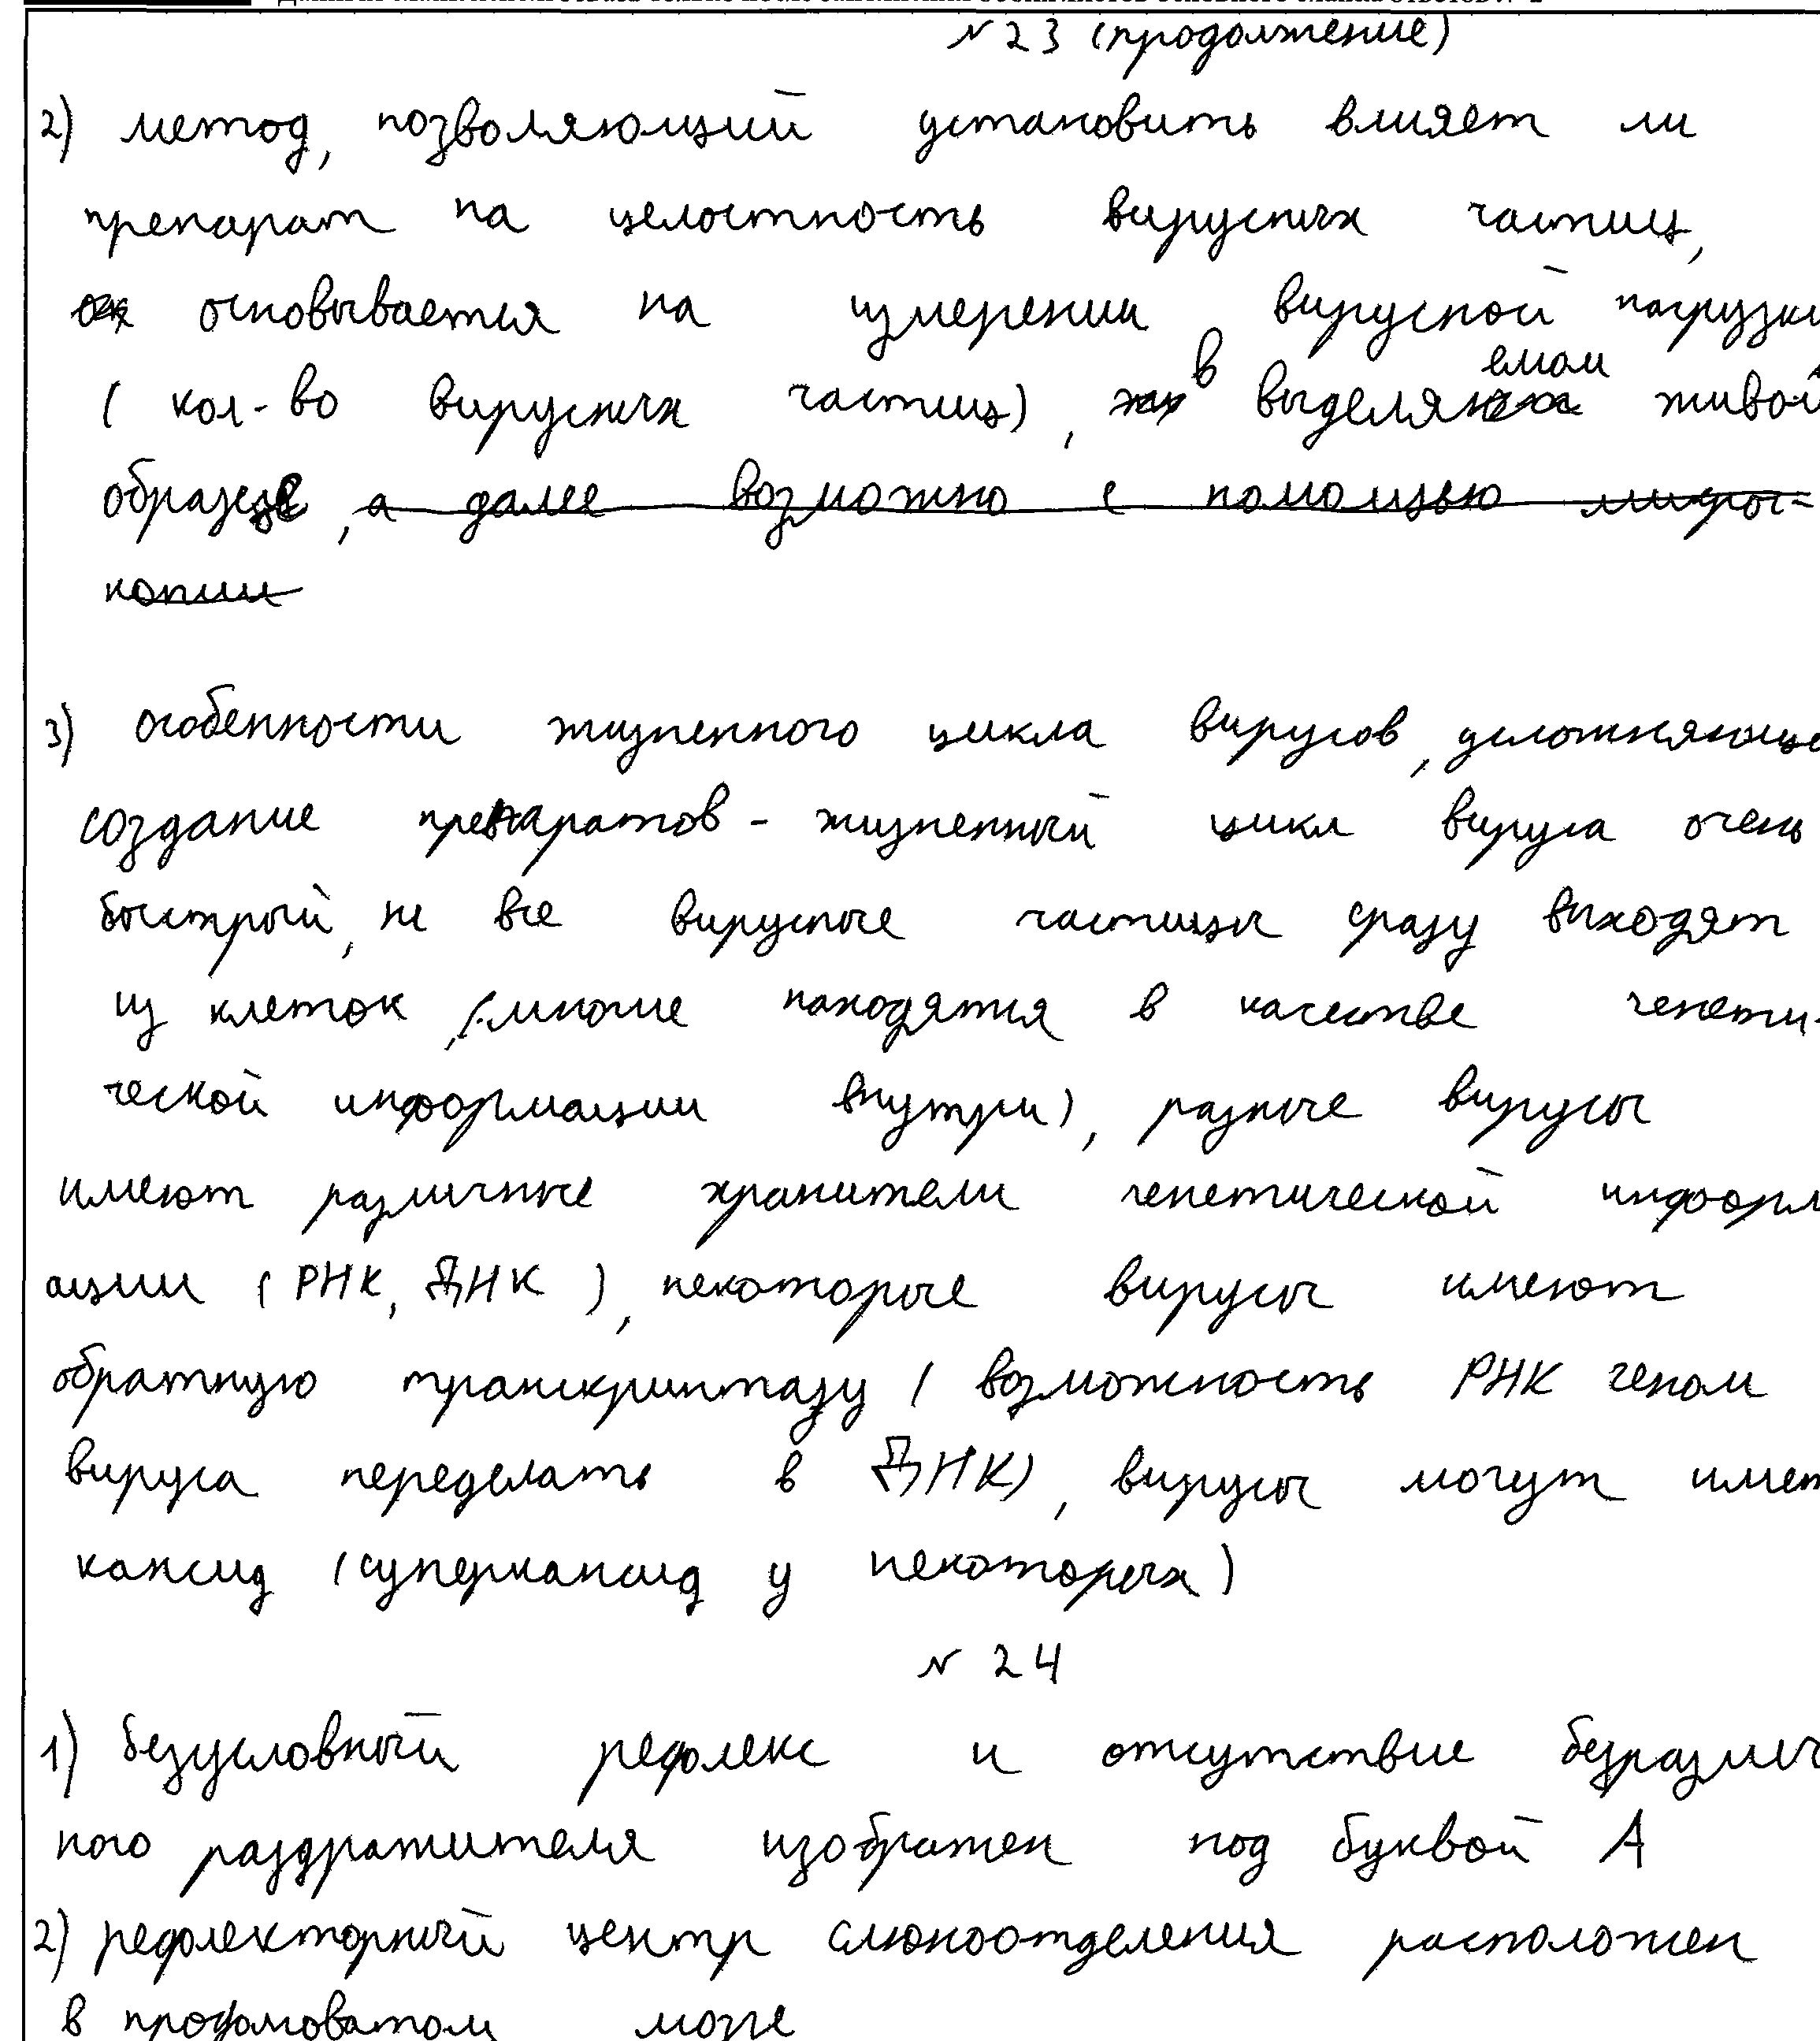 №23 (продолжение)
2) метод, позволяющий установить влияет ли
препарат на целостность вирусных частиц,
основывается на измерении вирусной нагрузки
(кол-во вирусных частиц), в выделяемом живой
образце, а далее возможно с помощью микрос-
копии
3) особенности жизненного цикла вирусов, усложняющие
создание препаратов - жизненный цикл вируса очень
быстрый, не все вирусные частицы сразу выходят
из клеток, (многие находятся в качестве генети-
ческой информации внутри), разные вирусы
имеют различные хранители генетической информ
ации (РНК, ДНК), некоторые вирусы имеют
обратную транскриптазу (возможность РНК геном
вируса переделать в ДНК), вирусы могут имет
капсид (суперкапсид у некоторых)
№ 24
1) безусловный рефлекс и отсутствие безразлич
ного раздражителя изображен под буквой А
2) рефлекторный центр слюноотделения расположен
в продолговатом мозге